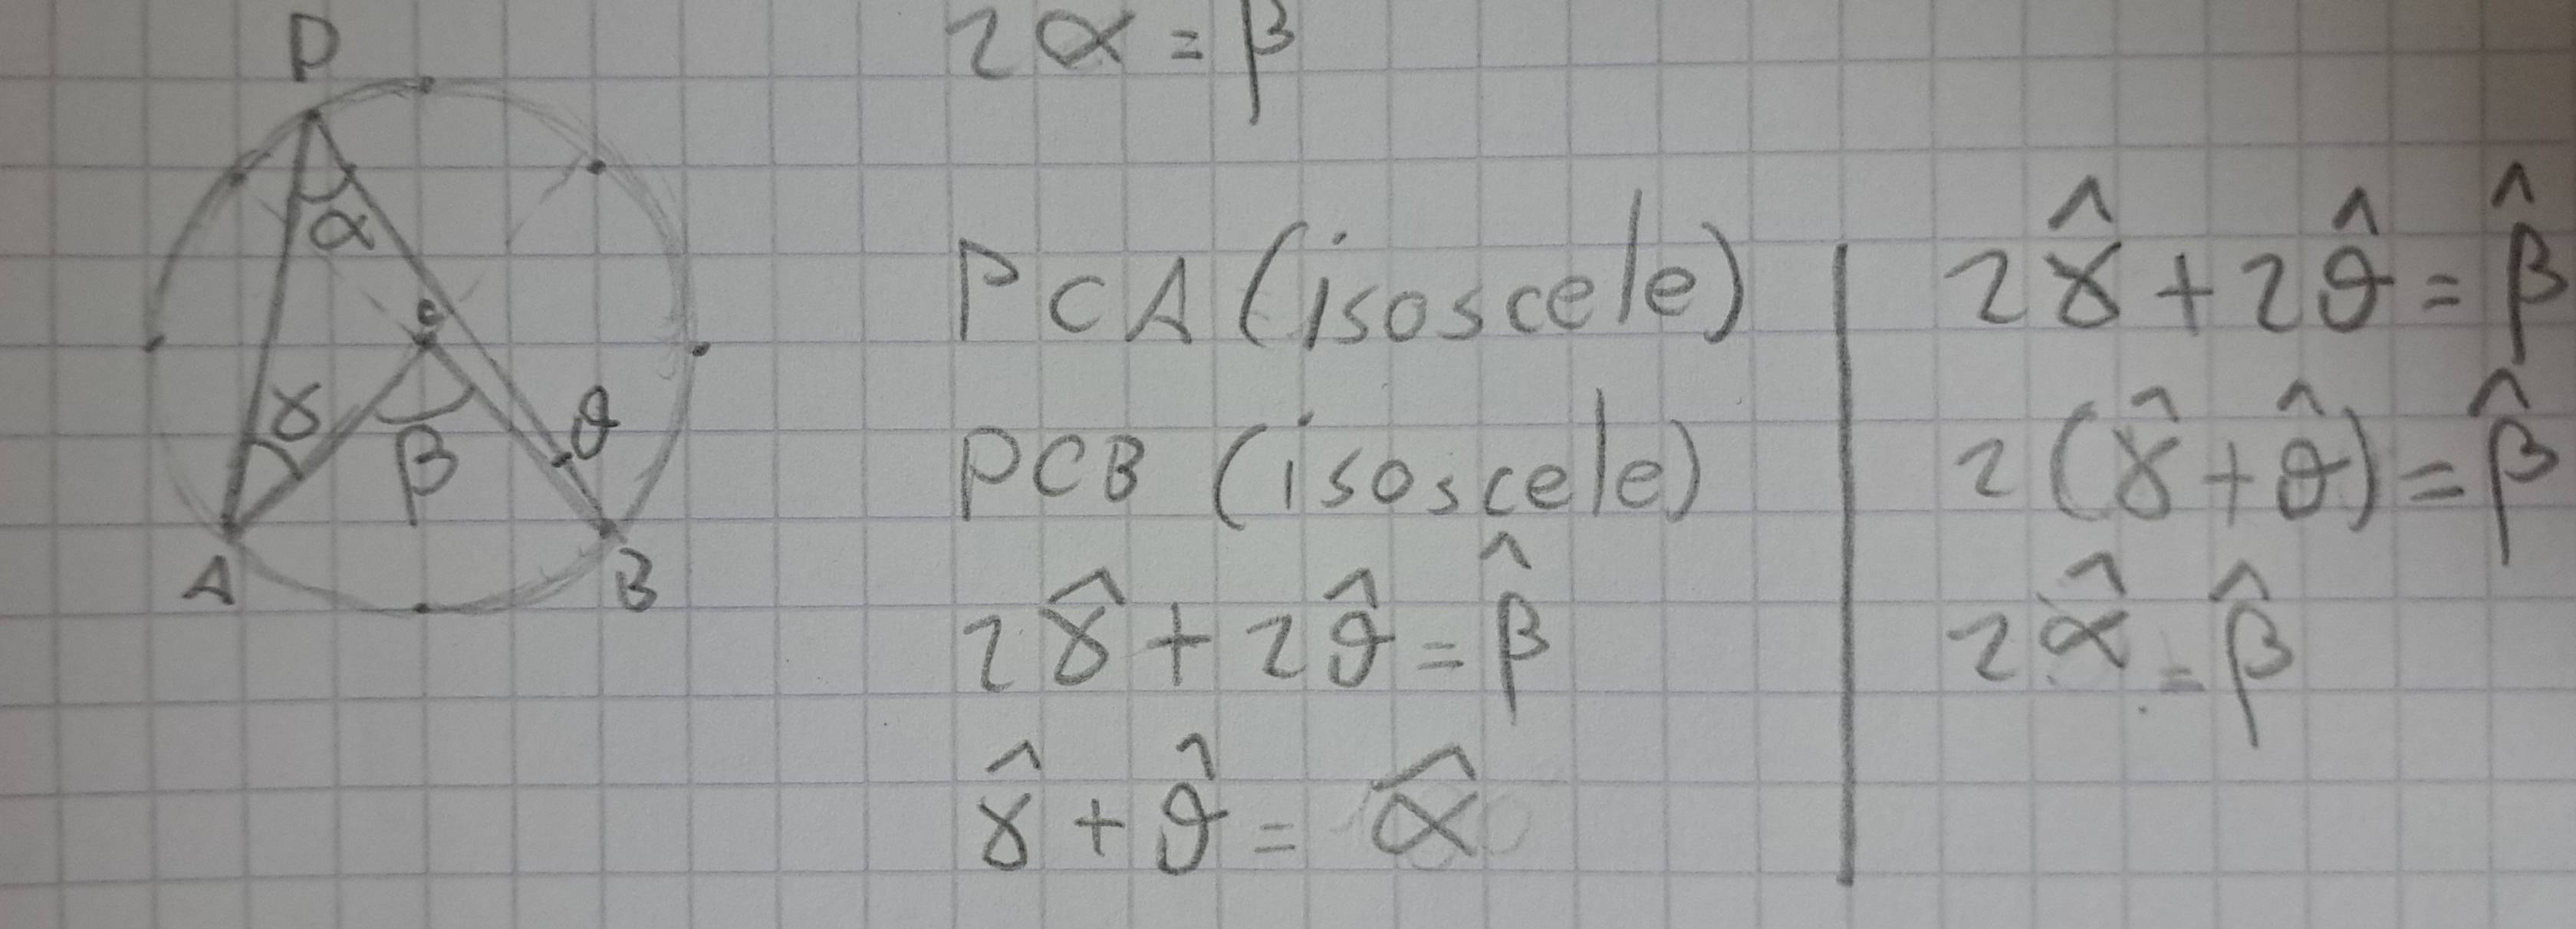 2α = β
P
α
C
γ
β
ϑ
A
B
PCA (isoscele)
PCB (isoscele)
2γ̂ + 2ϑ̂ = β̂
γ̂ + ϑ̂ = α̂
2γ̂ + 2ϑ̂ = β̂
2(γ̂ + ϑ̂) = β̂
2α̂ = β̂